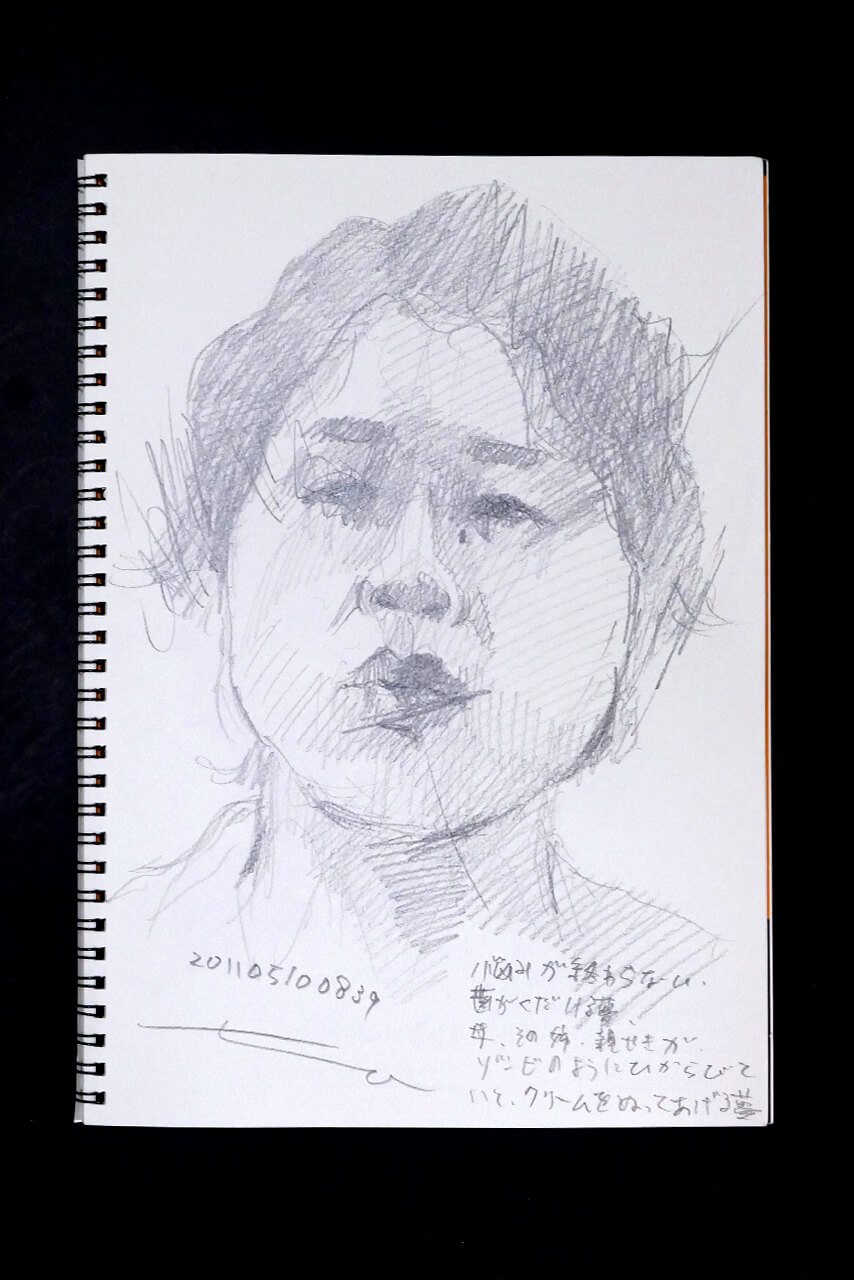 201105100839
悩みが終わらない、
歯がくだける夢、
母、その姉、親せきが、
ゾンビのようにひからびて
いて、クリームをぬってあげる夢